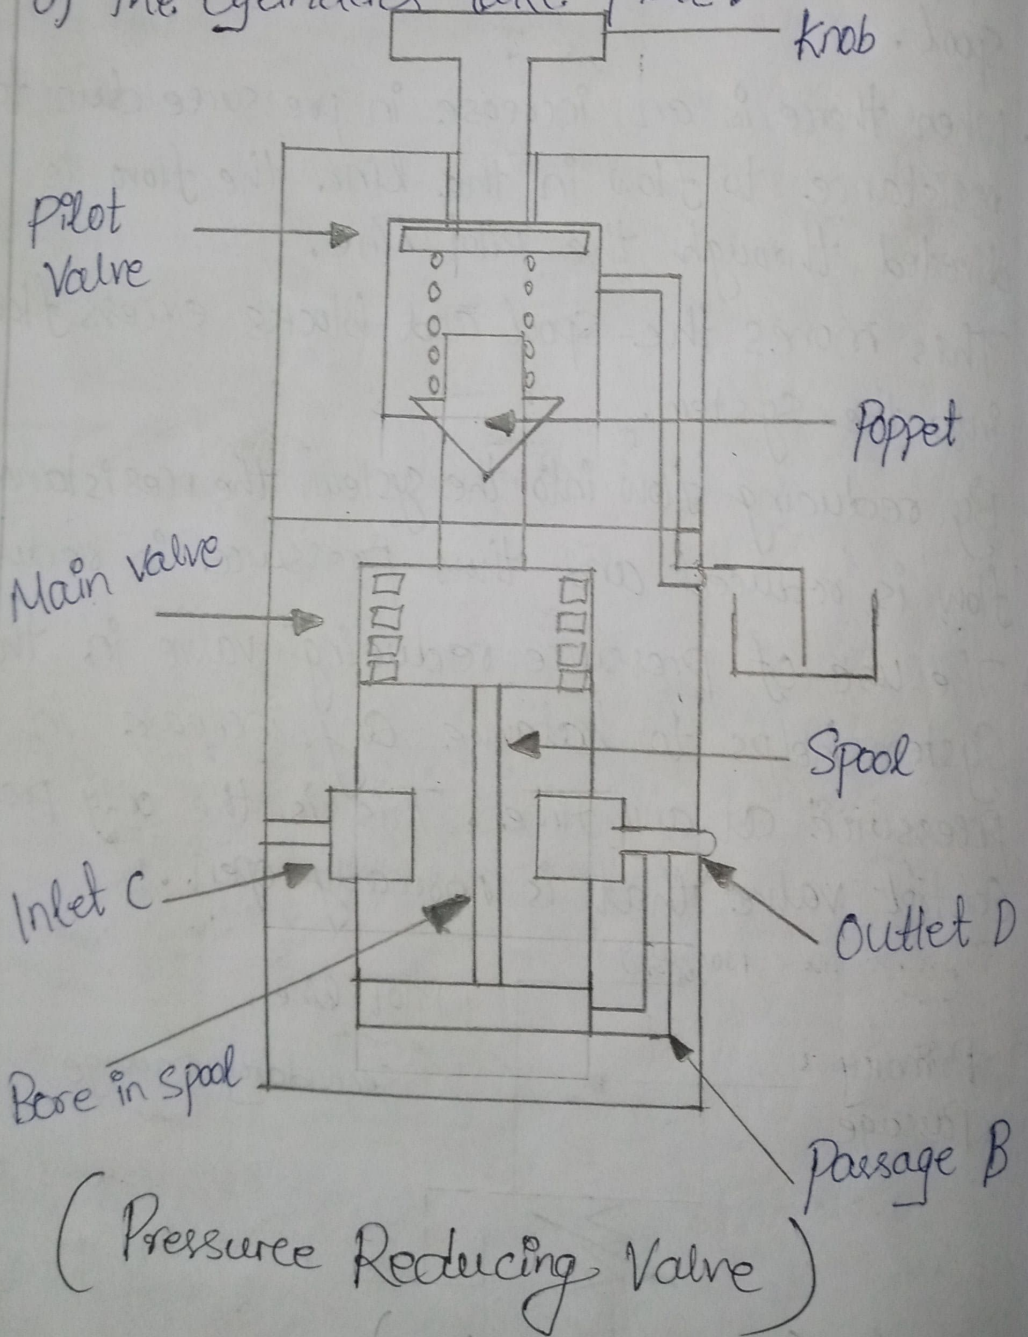 b) The
Knob
Pilot
Valve
Poppet
Main valve
Spool
Inlet C
Outlet D
Bore in spool
Passage B
(Pressuree Reducing Valve)